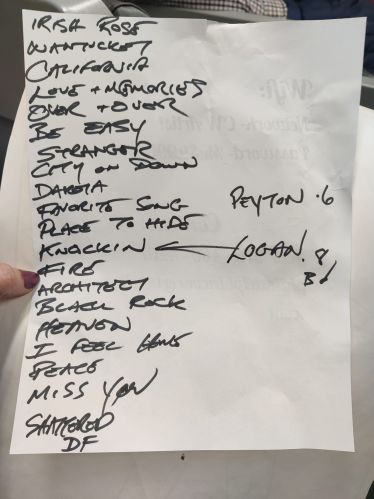 IRISH ROSE
WANTUCKET
CALIFORNIA
LOVE + MEMORIES
OVER + OVER
BE EASY
STRANGER
CITY ON DOWN
DAKOTA
FAVORITE SONG
PEYTON .6
PLACE TO HIDE
KNOCKIN
LOGAN. 8
FIRE
ARCHITECT
BLACK ROCK
HEAVEN
I FEEL HOME
PEACE
MISS YOU
SHATTERED
DF